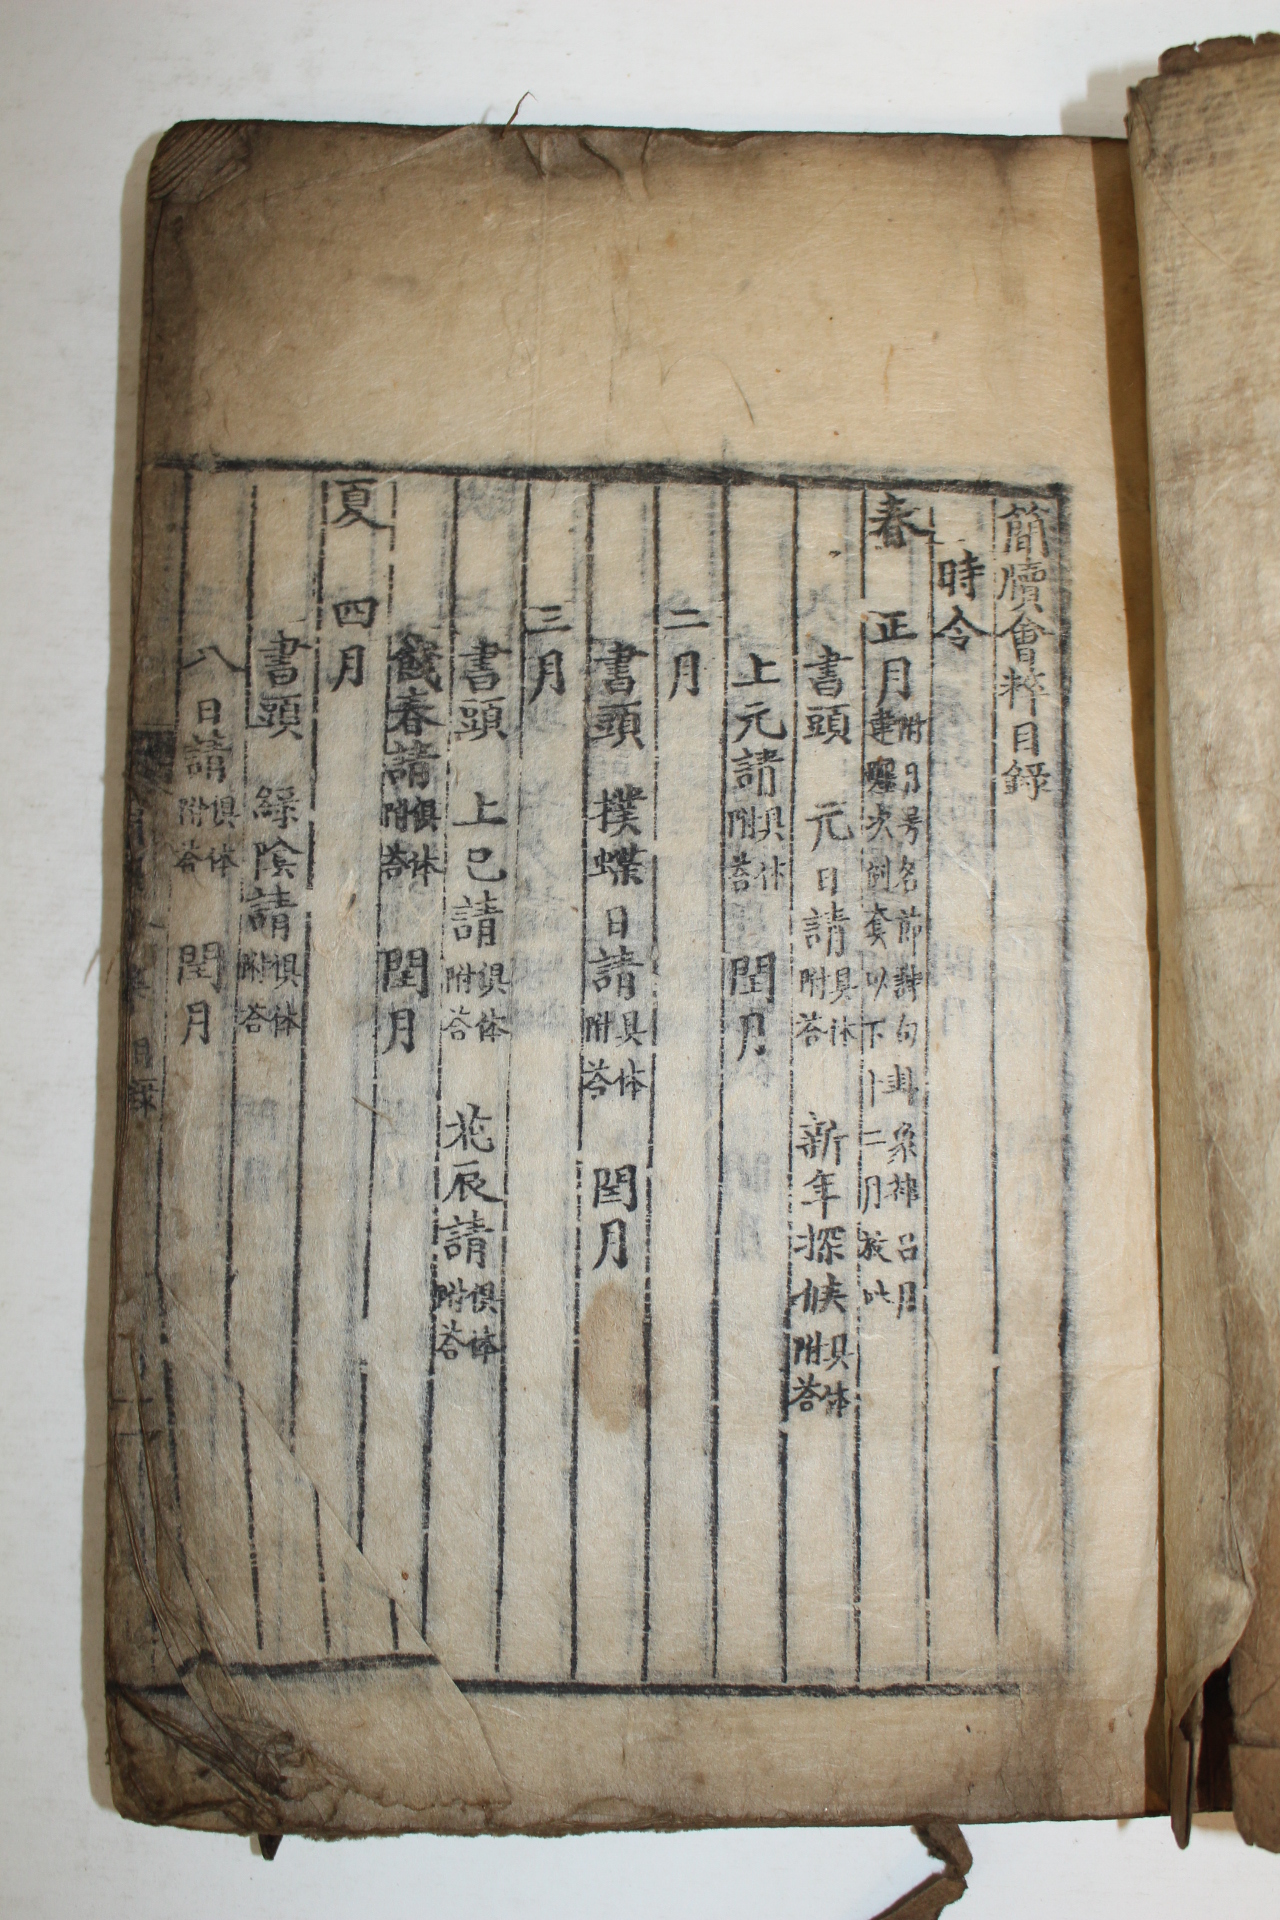 簡牘會粹目錄
時令
春 正月 附日号名節詩句卦象律呂月
建躔次倒套以下十二月放此
書頭 元日請 具体附答 新年探候 具体附答
上元請 具体附答 閏月
二月
書頭 撲蝶日請 具体附答 閏月
三月
書頭 上巳請 俱体附答 花辰請 俱体附答
餞春請 俱体附答 閏月
夏 四月
書頭 綠陰請 俱体附答
八日請 俱体附答 閏月
目錄